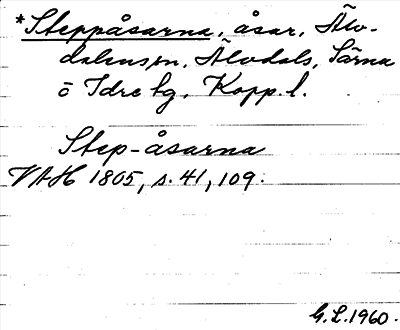 *Steppåsarna, åsar, Älv-
dalens sn, Älvdals, Särna
o Idre tg, Kopp. l.
Step-åsarna
VAH 1805, s. 41, 109.
G.L. 1960.